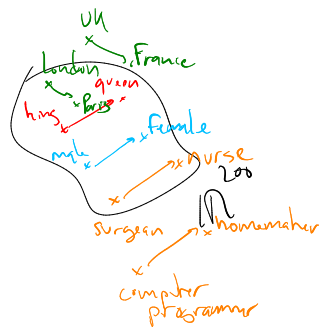 UK
France
London
queen
Paris
king
Female
male
nurse
200
surgean
homemaker
computer
programmer